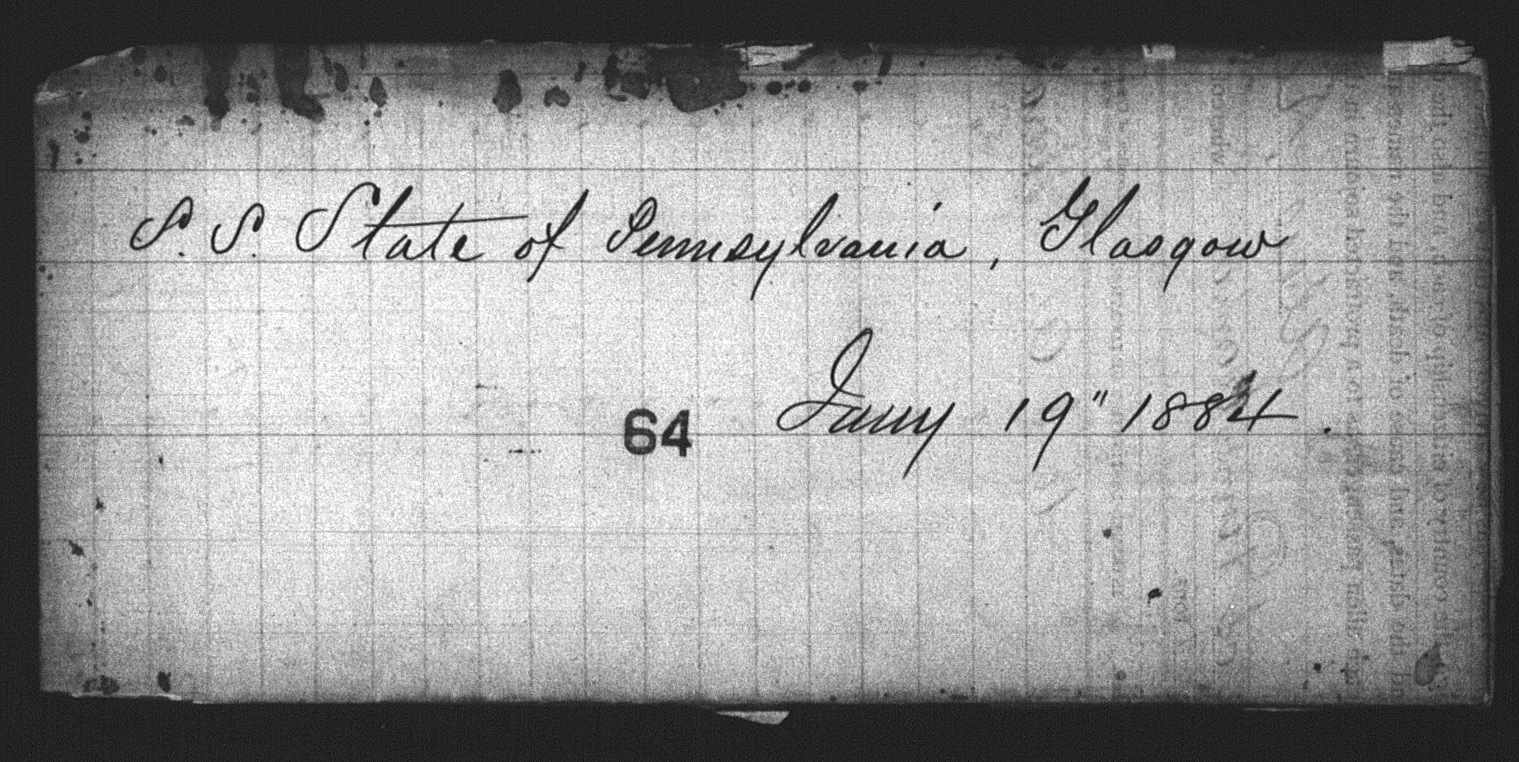 S. S. State of Pennsylvania, Glasgow
Jany 19" 1884.
64